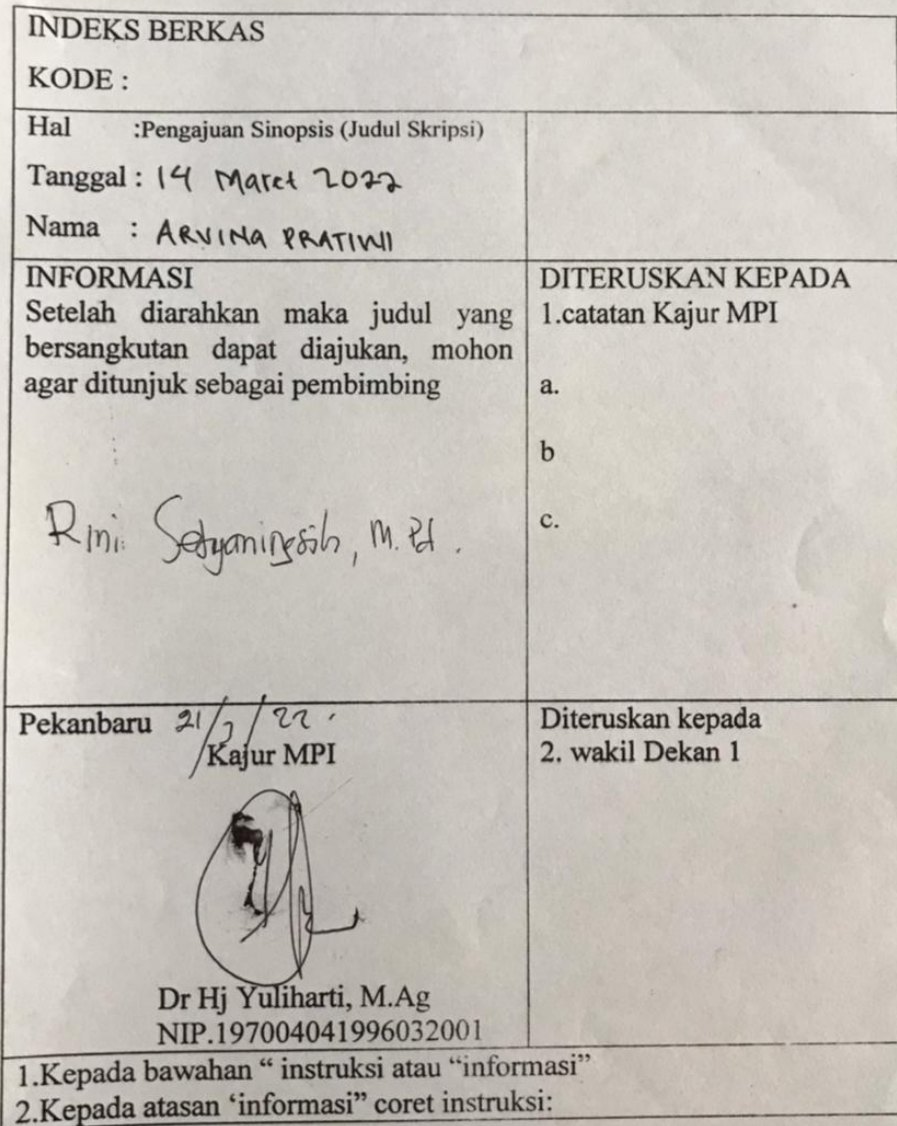 INDEKS BERKAS
KODE :
Hal :Pengajuan Sinopsis (Judul Skripsi)
Tanggal : 14 Maret 2022
Nama : ARVINA PRATIWI
INFORMASI
Setelah diarahkan maka judul yang
bersangkutan dapat diajukan, mohon
agar ditunjuk sebagai pembimbing
Rini Setyaningsih, M.Pd.
DITERUSKAN KEPADA
1.catatan Kajur MPI
a.
b
c.
Pekanbaru 21/3/22.
Kajur MPI
Dr Hj Yuliharti, M.Ag
NIP.197004041996032001
Diteruskan kepada
2. wakil Dekan 1
1.Kepada bawahan “ instruksi atau “informasi”
2.Kepada atasan ‘informasi” coret instruksi: